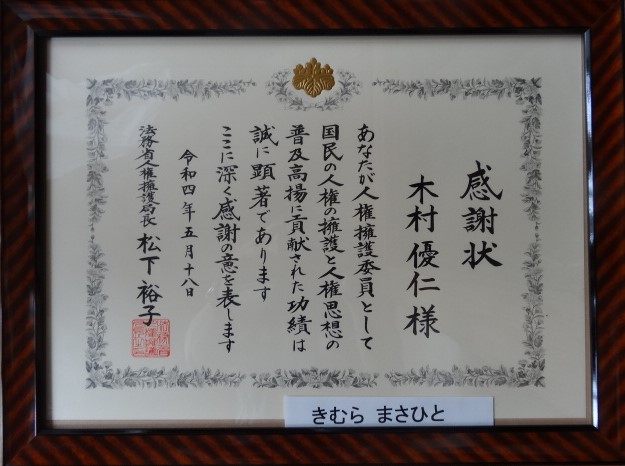 感謝状
木村優仁様
あなたが人権擁護委員として
国民の人権の擁護と人権思想の
普及高揚に貢献された功績は
誠に顕著であります
ここに深く感謝の意を表します
令和四年五月十八日
法務省人権擁護局長 松下裕子
きむら まさひと